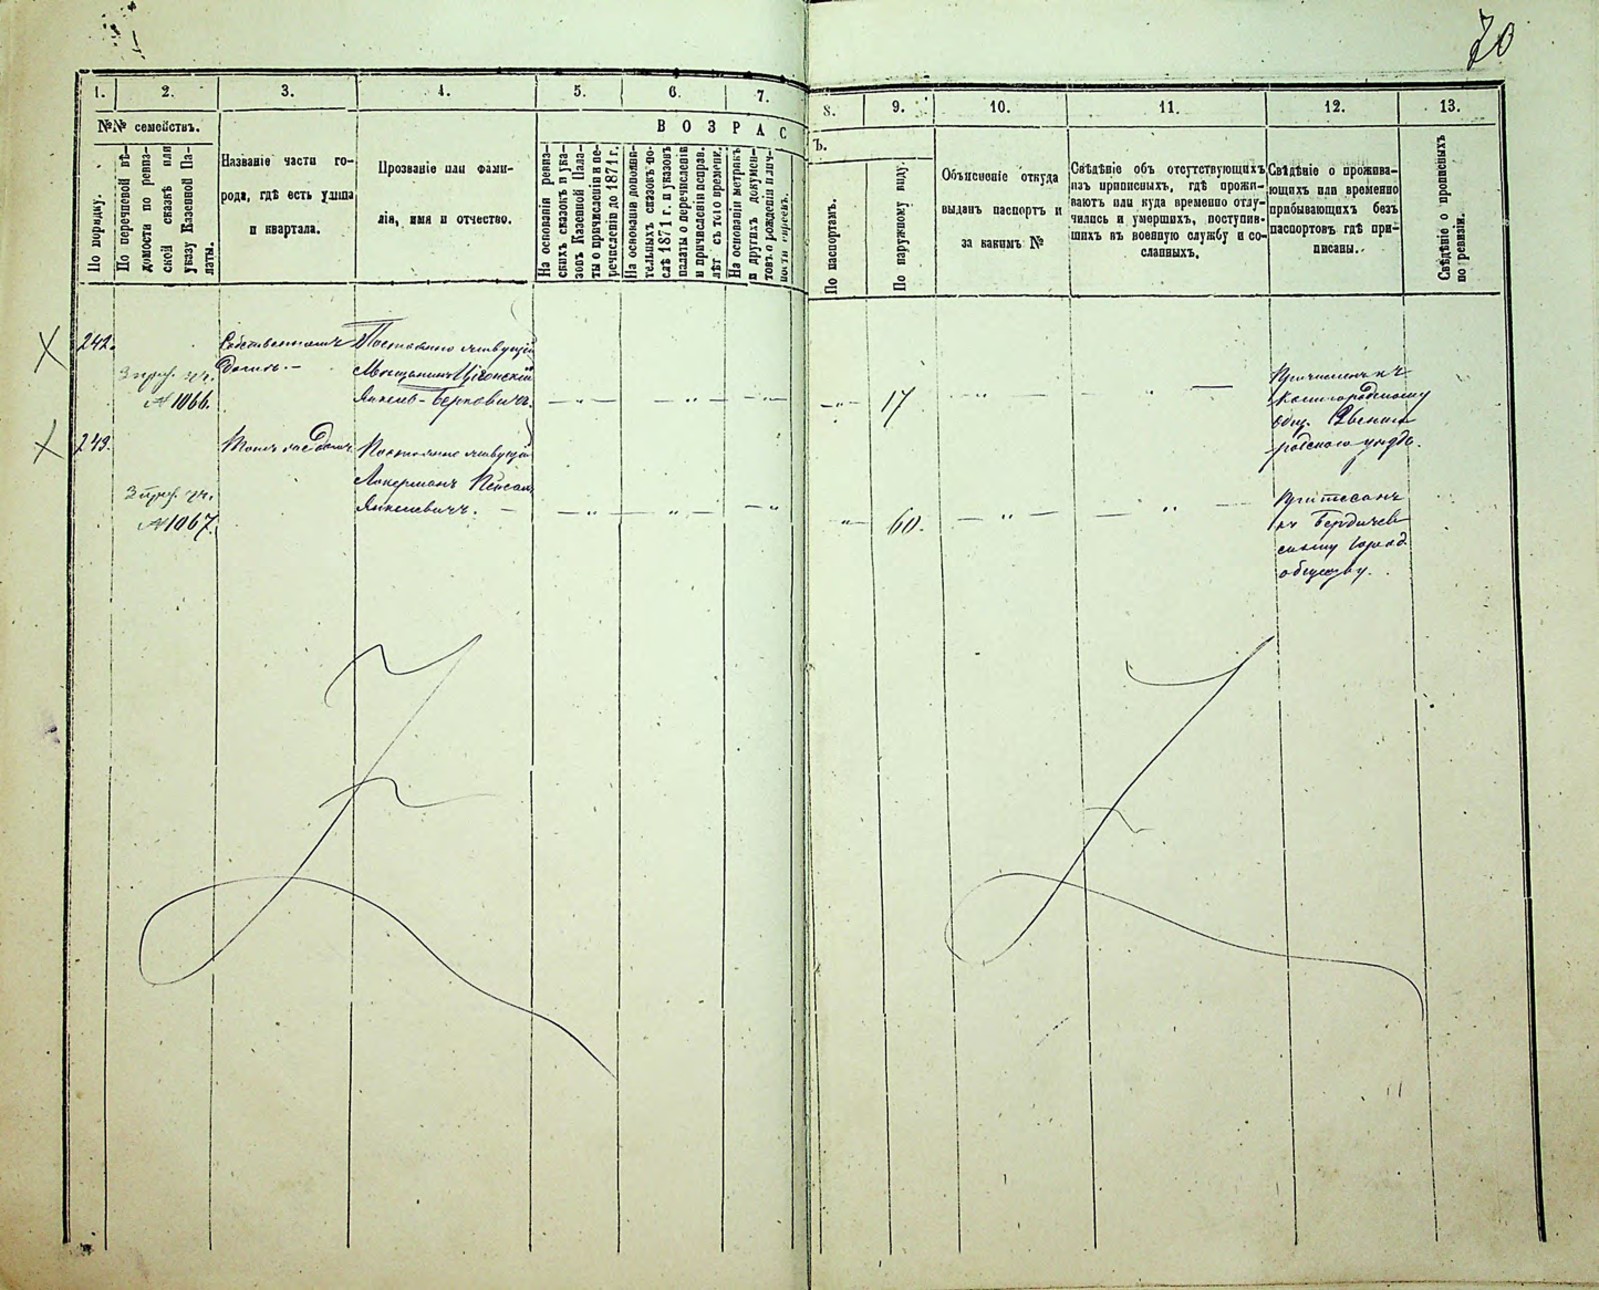 70
1.
2.
3.
4.
5.
6.
7.
8.
9.
10.
11.
12.
13.
№№ семействъ.
По порядку.
По перечневой вѣ-
домости по ревиз-
ской сказкѣ или
указу Казенной Па-
латы.
Названіе части го-
рода, гдѣ есть улица
и квартала.
Прозваніе или фами-
лія, имя и отчество.
ВОЗРАС
Ъ.
На основаніи ревиз-
скихъ сказокъ и ука-
зовъ Казенной Пала-
ты о причисленіи и пе-
речисленіи до 1871 г.
На основаніи дополни-
тельныхъ сказокъ по-
слѣ 1871 г. и указовъ
палаты о перечисленіи
и причисленіи исправ.
лѣт съ того времени.
На основаніи метрикъ
и другихъ докумен-
товъ о рожденіи и лич-
ности евреевъ.
По паспортамъ.
По наружному виду.
Объясненіе откуда
выданъ паспортъ и
за какимъ №
Свѣдѣніе объ отсутствующихъ
изъ приписныхъ, гдѣ прожи-
ваютъ или куда временно отлу-
чились и умершихъ, поступив-
шихъ въ военную службу и со-
сланныхъ.
Свѣдѣніе о прожива-
ющихъ или временно
прибывающихъ безъ
паспортовъ гдѣ при-
писаны.
Свѣдѣніе о прописныхъ
по ревизіи.
242.
№ 1066.
Собственномъ
Домѣ.
Постоянно живущій
Мѣщанинъ
Янкель-Берковичъ.
— „ — — „ — — „ —
— „ —
17
Причисленъ къ
243.
№ 1067.
Постоянно живущій
Акерманъ
Янкелевичъ. —
— „ — — „ — — „
„ —
60.
— „ — — „ —
къ Бердичев
скому город.
обществу.